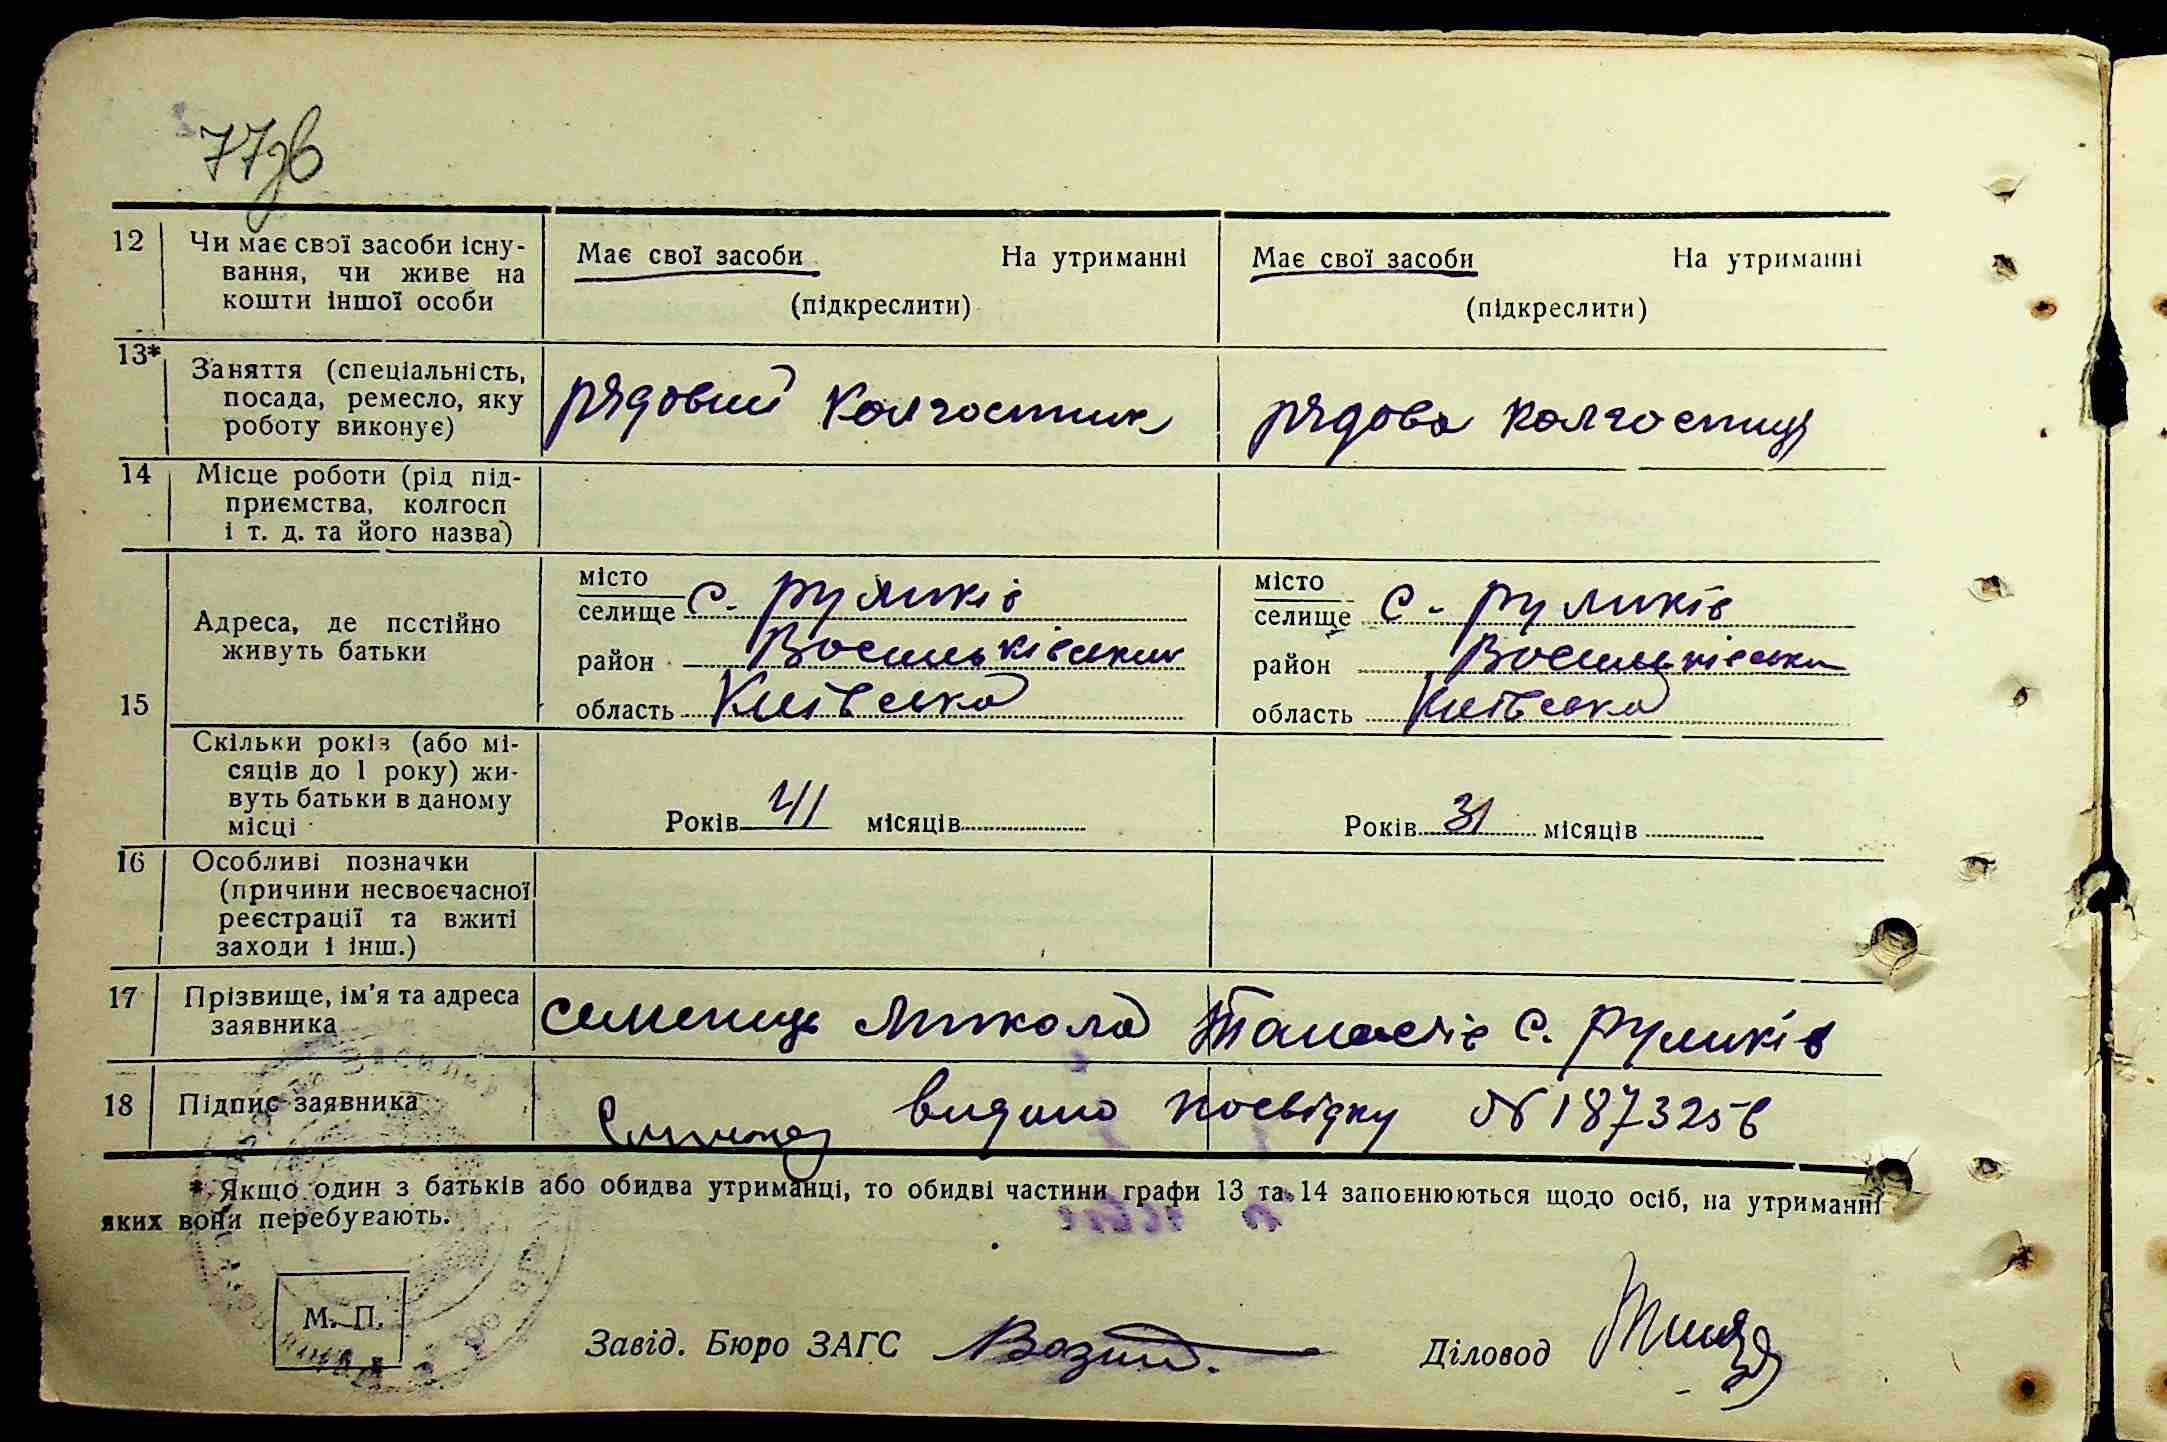 77зв
12 Чи має свої засоби існу-
вання, чи живе на
кошти іншої особи
Має свої засоби На утриманні
(підкреслити)
Має свої засоби На утриманні
(підкреслити)
13* Заняття (спеціальність,
посада, ремесло, яку
роботу виконує)
рядовий колгоспник
рядова колгоспниця
14 Місце роботи (рід під-
приємства, колгосп
і т. д. та його назва)
15
Адреса, де постійно
живуть батьки
місто
селище с. Руликів
район Васильківський
область Київська
місто
селище с. Руликів
район Васильківський
область Київська
Скільки років (або мі-
сяців до 1 року) жи-
вуть батьки в даному
місці
Років 41 місяців
Років 31 місяців
16 Особливі позначки
(причини несвоєчасної
реєстрації та вжиті
заходи і інш.)
17 Прізвище, ім'я та адреса
заявника
Семенець Микола с. Руликів
18 Підпис заявника
видано посвідку № 1873256
* Якщо один з батьків або обидва утриманці, то обидві частини графи 13 та 14 заповнюються щодо осіб, на утриманні
яких вони перебувають.
М. П.
Завід. Бюро ЗАГС
Діловод